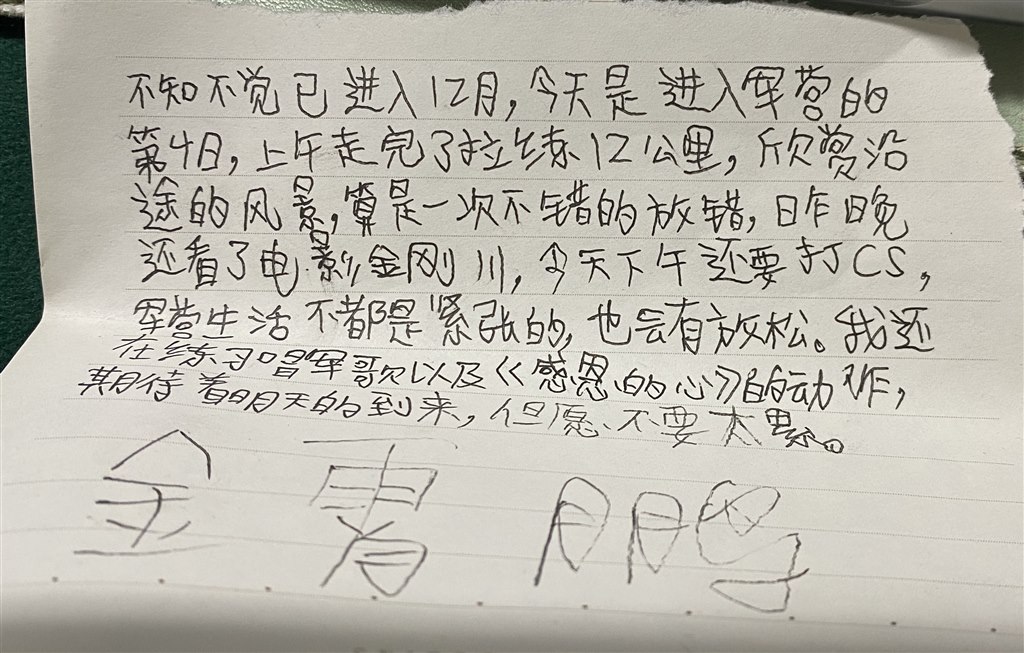 不知不觉已进入12月,今天是进入军营的
第4日,上午走完了拉练12公里,欣赏沿
途的风景,算是一次不错的放错,昨晚
还看了电影金刚川,今天下午还要打CS,
军营生活不都是紧张的,也会有放松。我还
在练习唱军歌以及《感恩的心》的动作,
期待着明天的到来,但愿不要太累。
金霄鹏